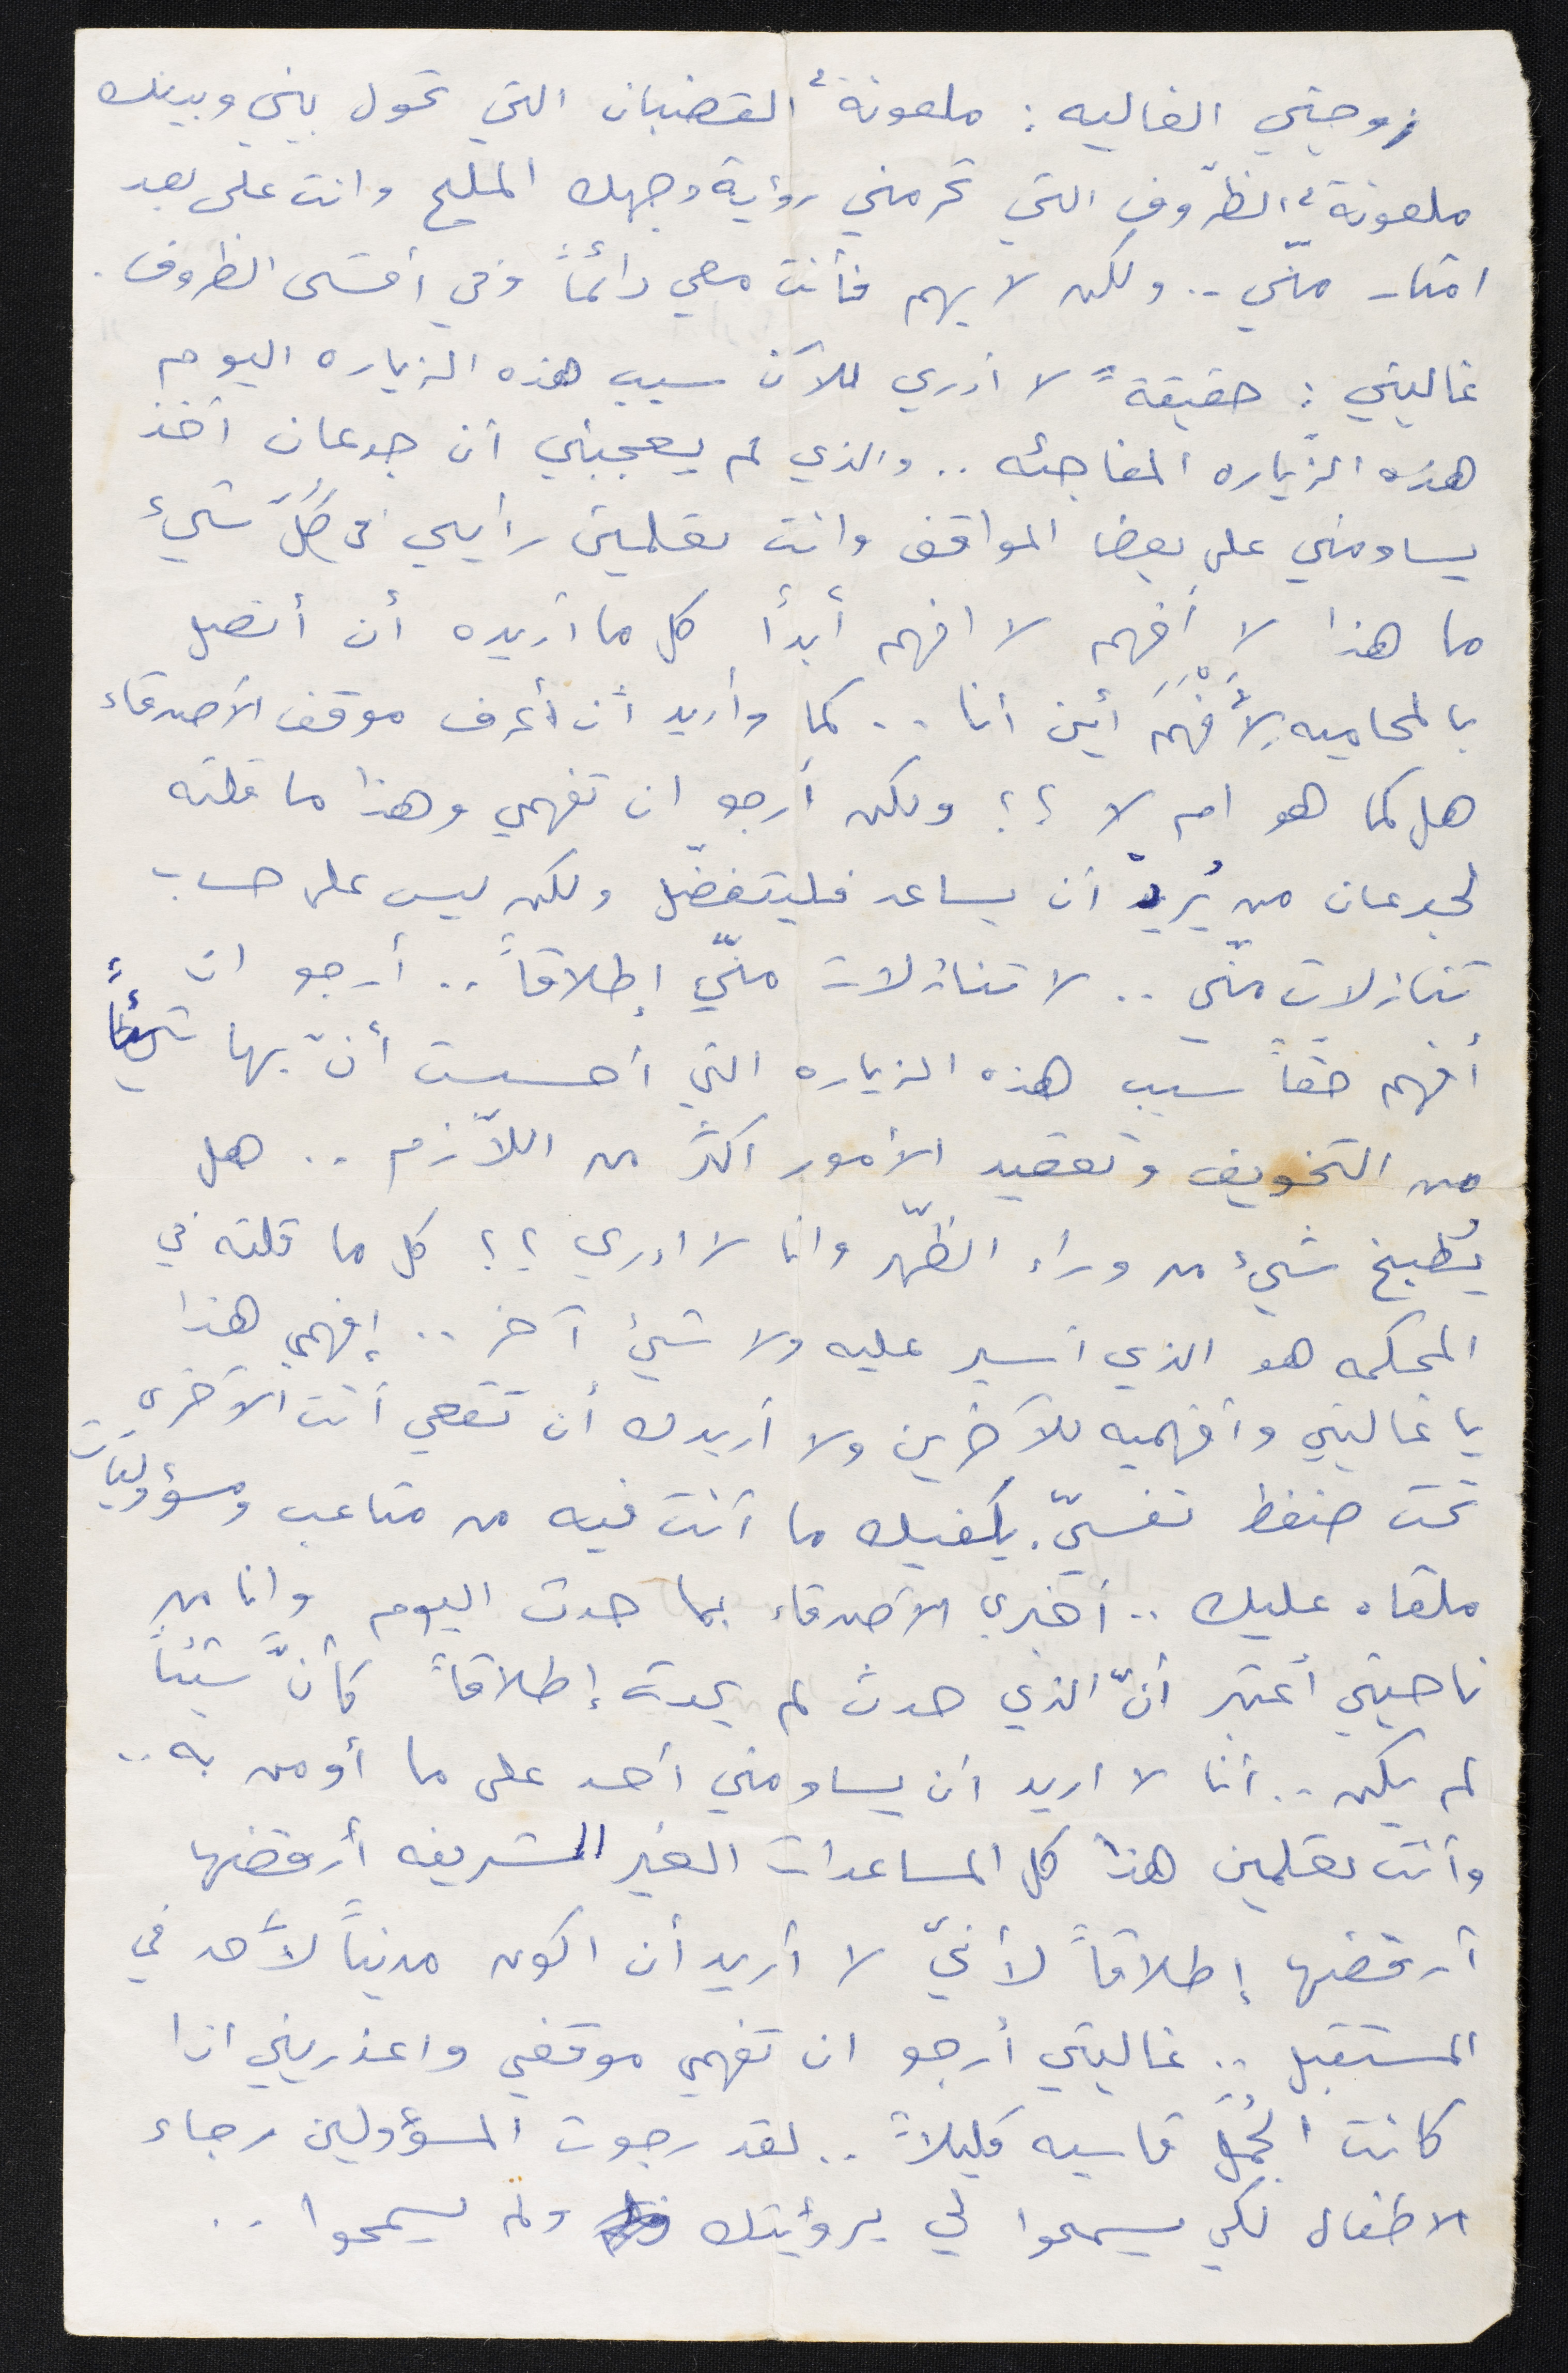 زوجتي الغاليه : ملعونةٌ القضبان التي تحول بيني وبينك
ملعونةٌ الظّروف التي تحرمني رؤية وجهك المليح وانت على بعد
امتار منّي .. ولكن لا يهم فأنت معي دائماً وفي أقسى الظروف .
غاليتي : حقيقةً لا أدري للآن سبب هذه الزياره اليوم
هذه الزّياره المفاجئه .. والذي لم يعجبني أن جدعان أخذ
يساومني على بعض المواقف وانت تعلمين رأيي في كلّ شيء
ما هذا لا أفهم لا افهم أبدأ كل ما أريده أن أتصل
بالمحاميه لِأَفْهَمَ أين أنا .. كما وأريد أن أعرف موقف الأصدقاء
هل كما هو ام لا ؟؟ ولكن أرجو ان تفهمي وهذا ما قلته
لجدعان من يُريدْ أن يساعد فليتفضّل ولكن ليس على حساب
تنازلات منّي .. لا تنازلات منّي إطلاقاً .. أرجو ان
أفهم حقاً سبب هذه الزياره التي أحسست أنّ بها شيئاً
من التخويف وتعقيد الأمور اكثر من اللاّزم .. هل
يُطبخ شيء من وراء الظّهر وانا لا ادري ؟؟ كل ما قلته في
المحكمه هو الذي أسير عليه ولا شيئ آخر .. إفهمي هذا
يا غاليتي وأفهميه للآخرين ولا أريدك أن تقعي أنت الأخرى
تحت ضغط نفسيّ. يكفيك ما أنت فيه من متاعب ومسؤوليّات
ملقاه عليك .. أخبري الأصدقاء بما حدث اليوم وانا من
ناحيتي أعتبر أنّ الذي حدث لم يحدث إطلاقاً كأنَّ شيئاً
لم يكن .. أنا لا اريد أن يساومني أحد على ما أومن به ..
وأنت تعلمين هذا كل المساعدات الغير الشريفه أرفضها
أرفضها إطلاقاً لأنّي لا أريد أن اكون مديناً لأحد في
المستقبل .. غاليتي أرجو ان تفهمي موقفي واعذريني اذا
كانت الجُمَل قاسيه قليلاً .. لقد رجوت المسؤولين رجاء
الاطفال لكي يسمحوا لي برؤيتك ولم يسمحوا ..